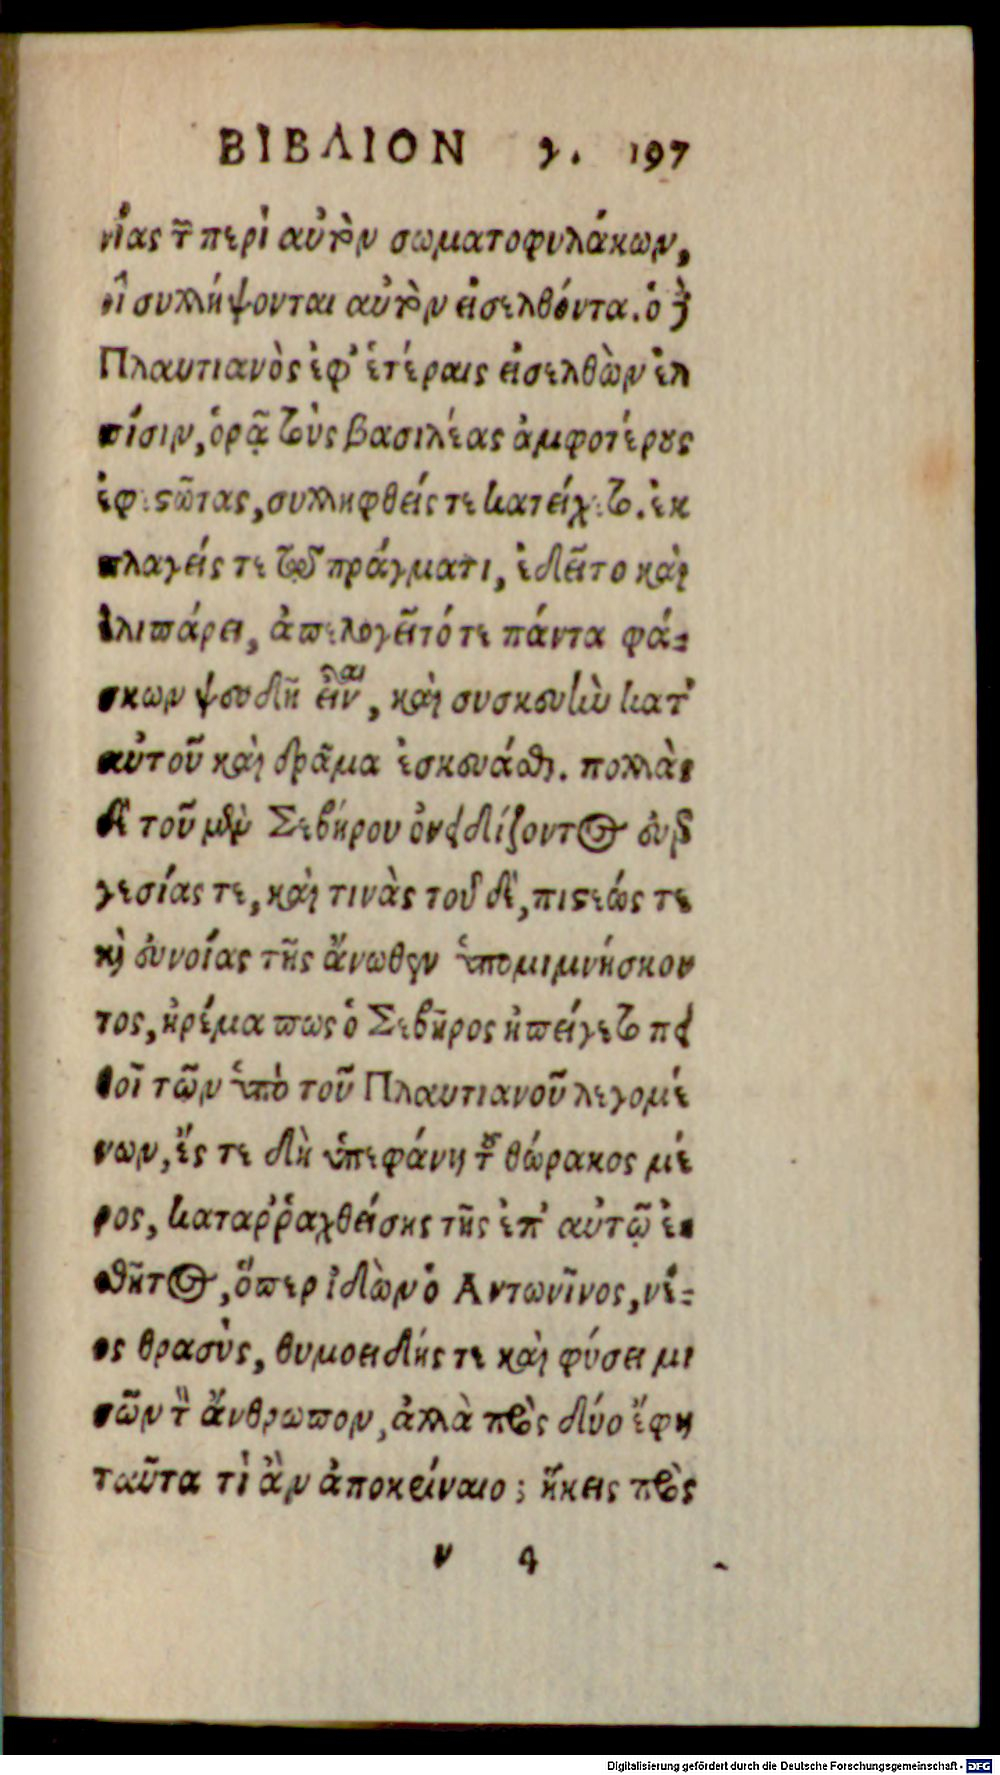 ΒΙΒΛΙΟΝ γ. 197
νίας τ̃ περὶ αὐτὸν σωματοφυλάκων,
οἳ συλλήψονται αὐτὸν εἰσελθόντα. ὁ δὲ
Πλαυτιανὸς ἐφ' ἑτέραις εἰσελθὼν ἐλ
πίσιν, ὁρᾷ τοὺς βασιλέας ἀμφοτέρους
ἐφεστῶτας, συλληφθείς τε κατείχετο. ἐκ
πλαγείς τε τῷ πράγματι, ἐδεῖτο καὶ
ἐλιπάρει, ἀπελογεῖτό τε πάντα φά-
σκων ψευδῆ εἶναι, καὶ συσκευὴν κατ'
αὐτοῦ καὶ δρᾶμα ἐσκευάσθαι. πολλὰς
δὲ τοῦ μὲν Σεβήρου ὀνειδίζοντος εὐερ
γεσίας τε, καὶ τινὰς τοῦ δὲ, πίστεώς τε
καὶ εὐνοίας τῆς ἄνωθεν ὑπομιμνήσκον
τος, ἠρέμα πως ὁ Σεβῆρος ἠπείγετο πεί
θοι τῶν ὑπὸ τοῦ Πλαυτιανοῦ λεγομέ
νων, ἔς τε δὴ ὑπεφάνη τοῦ θώρακος μέ
ρος, καταρῥαχθείσης τῆς ἐπ' αὐτῷ ἐ
σθῆτος, ὅπερ ἰδὼν ὁ Αντωνῖνος, νέ-
ος θρασὺς, θυμοειδής τε καὶ φύσει μι
σῶν τὸν ἄνθρωπον, ἀλλὰ πρὸς δύο ἔφη
ταῦτα τὶ ἂν ἀποκρίναιο; ἥκεις πρὸς
ν 4
Digitalisierung gefördert durch die Deutsche Forschungsgemeinschaft - DFG